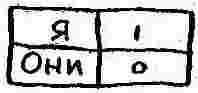 Я 1
Они 0